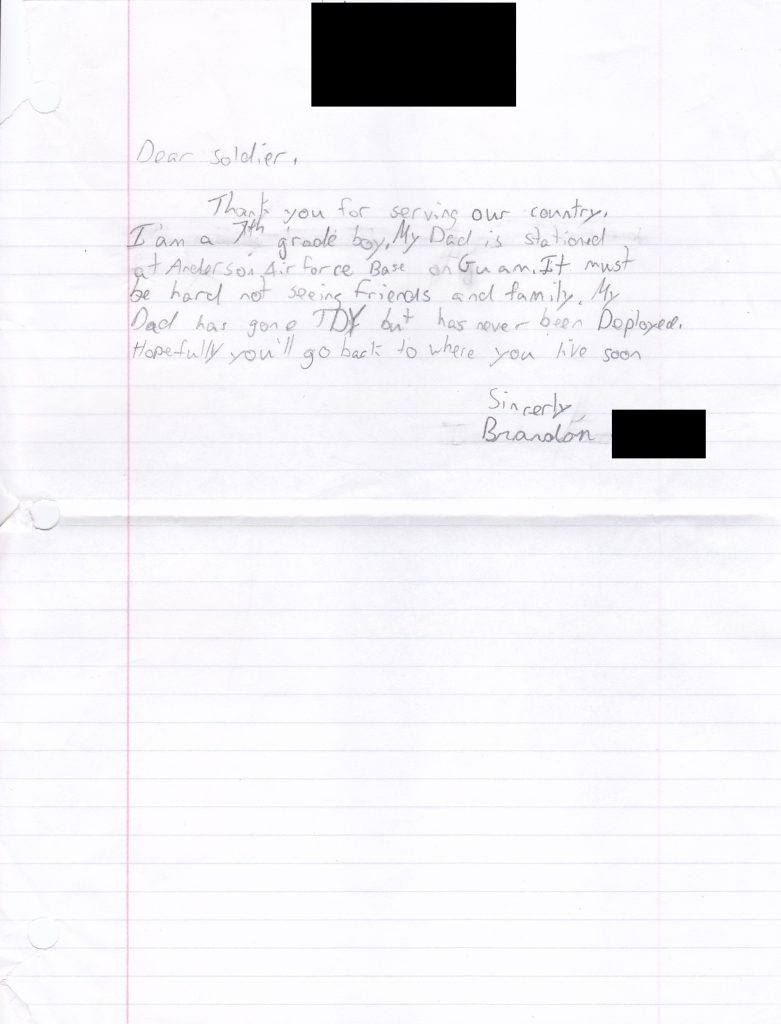 Dear soldier,
Thank you for serving our country.
I am a 7th grade boy. My Dad is stationed
at Anderson Air force Base on Guam. It must
be hard not seeing friends and family. My
Dad has gone TDY but has never been Deployed.
Hopefully you'll go back to where you live soon
Sincerly,
Brandon